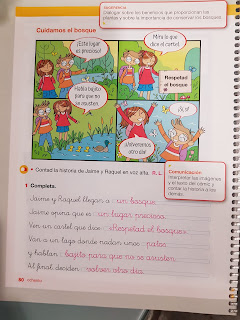 SUGERENCIA
Dialogar sobre los beneficios que proporcionan las
plantas y sobre la importancia de conservar los bosques.
Cuidamos el bosque
¡Este lugar
es precioso!
Mira lo que
dice el cartel.
Respetad
el bosque
Habla bajito
para que no
se asusten.
¡Sí!
¡Volveremos
otro día!
Contad la historia de Jaime y Raquel en voz alta. R. L.
Comunicación
Interpretar las imágenes
y el texto del cómic y
contar la historia a los
demás.
1 Completa.
Jaime y Raquel llegan a un bosque.
Jaime opina que es un lugar precioso.
Ven un cartel que dice: «Respetad el bosque»
Van a un lago donde nadan unos patos
y hablan bajito para que no se asusten.
Al final deciden volver otro día.
80